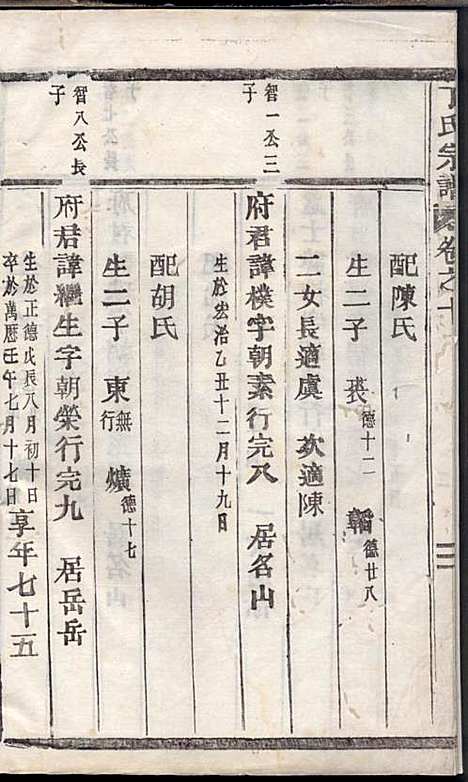 丁氏宗譜 卷之十
配陳氏
生二子 裘 德十二 韜 德廿八
二女長適虞 次適陳
智一公三子
府君諱樸字朝素行完八 居名山
生於宏治乙丑十二月十九日
配胡氏
生二子 東 無行 爌 德十七
智八公長子
府君諱巒生字朝榮行完九 居岳岳
生於正德戊辰八月初十日
卒於萬曆壬午七月十七日
享年七十五